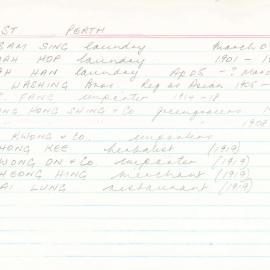 ST PERTH
SAM SING laundry March 0
WAH HOP laundry 1901 - 1
AH HAN laundry Ap 05 - ? Mar
WASHING Bros. Reg as Asian 1905 -
FANG carpenter 1914 - 18
HONG SHING & Co greengrocers
" " " " 1908
KWONG & Co carpenters
HONG KEE herbalist (1919)
WONG ON & Co carpenter (1919)
HEONG HING merchant (1919)
AI LUNG restaurant (1919)